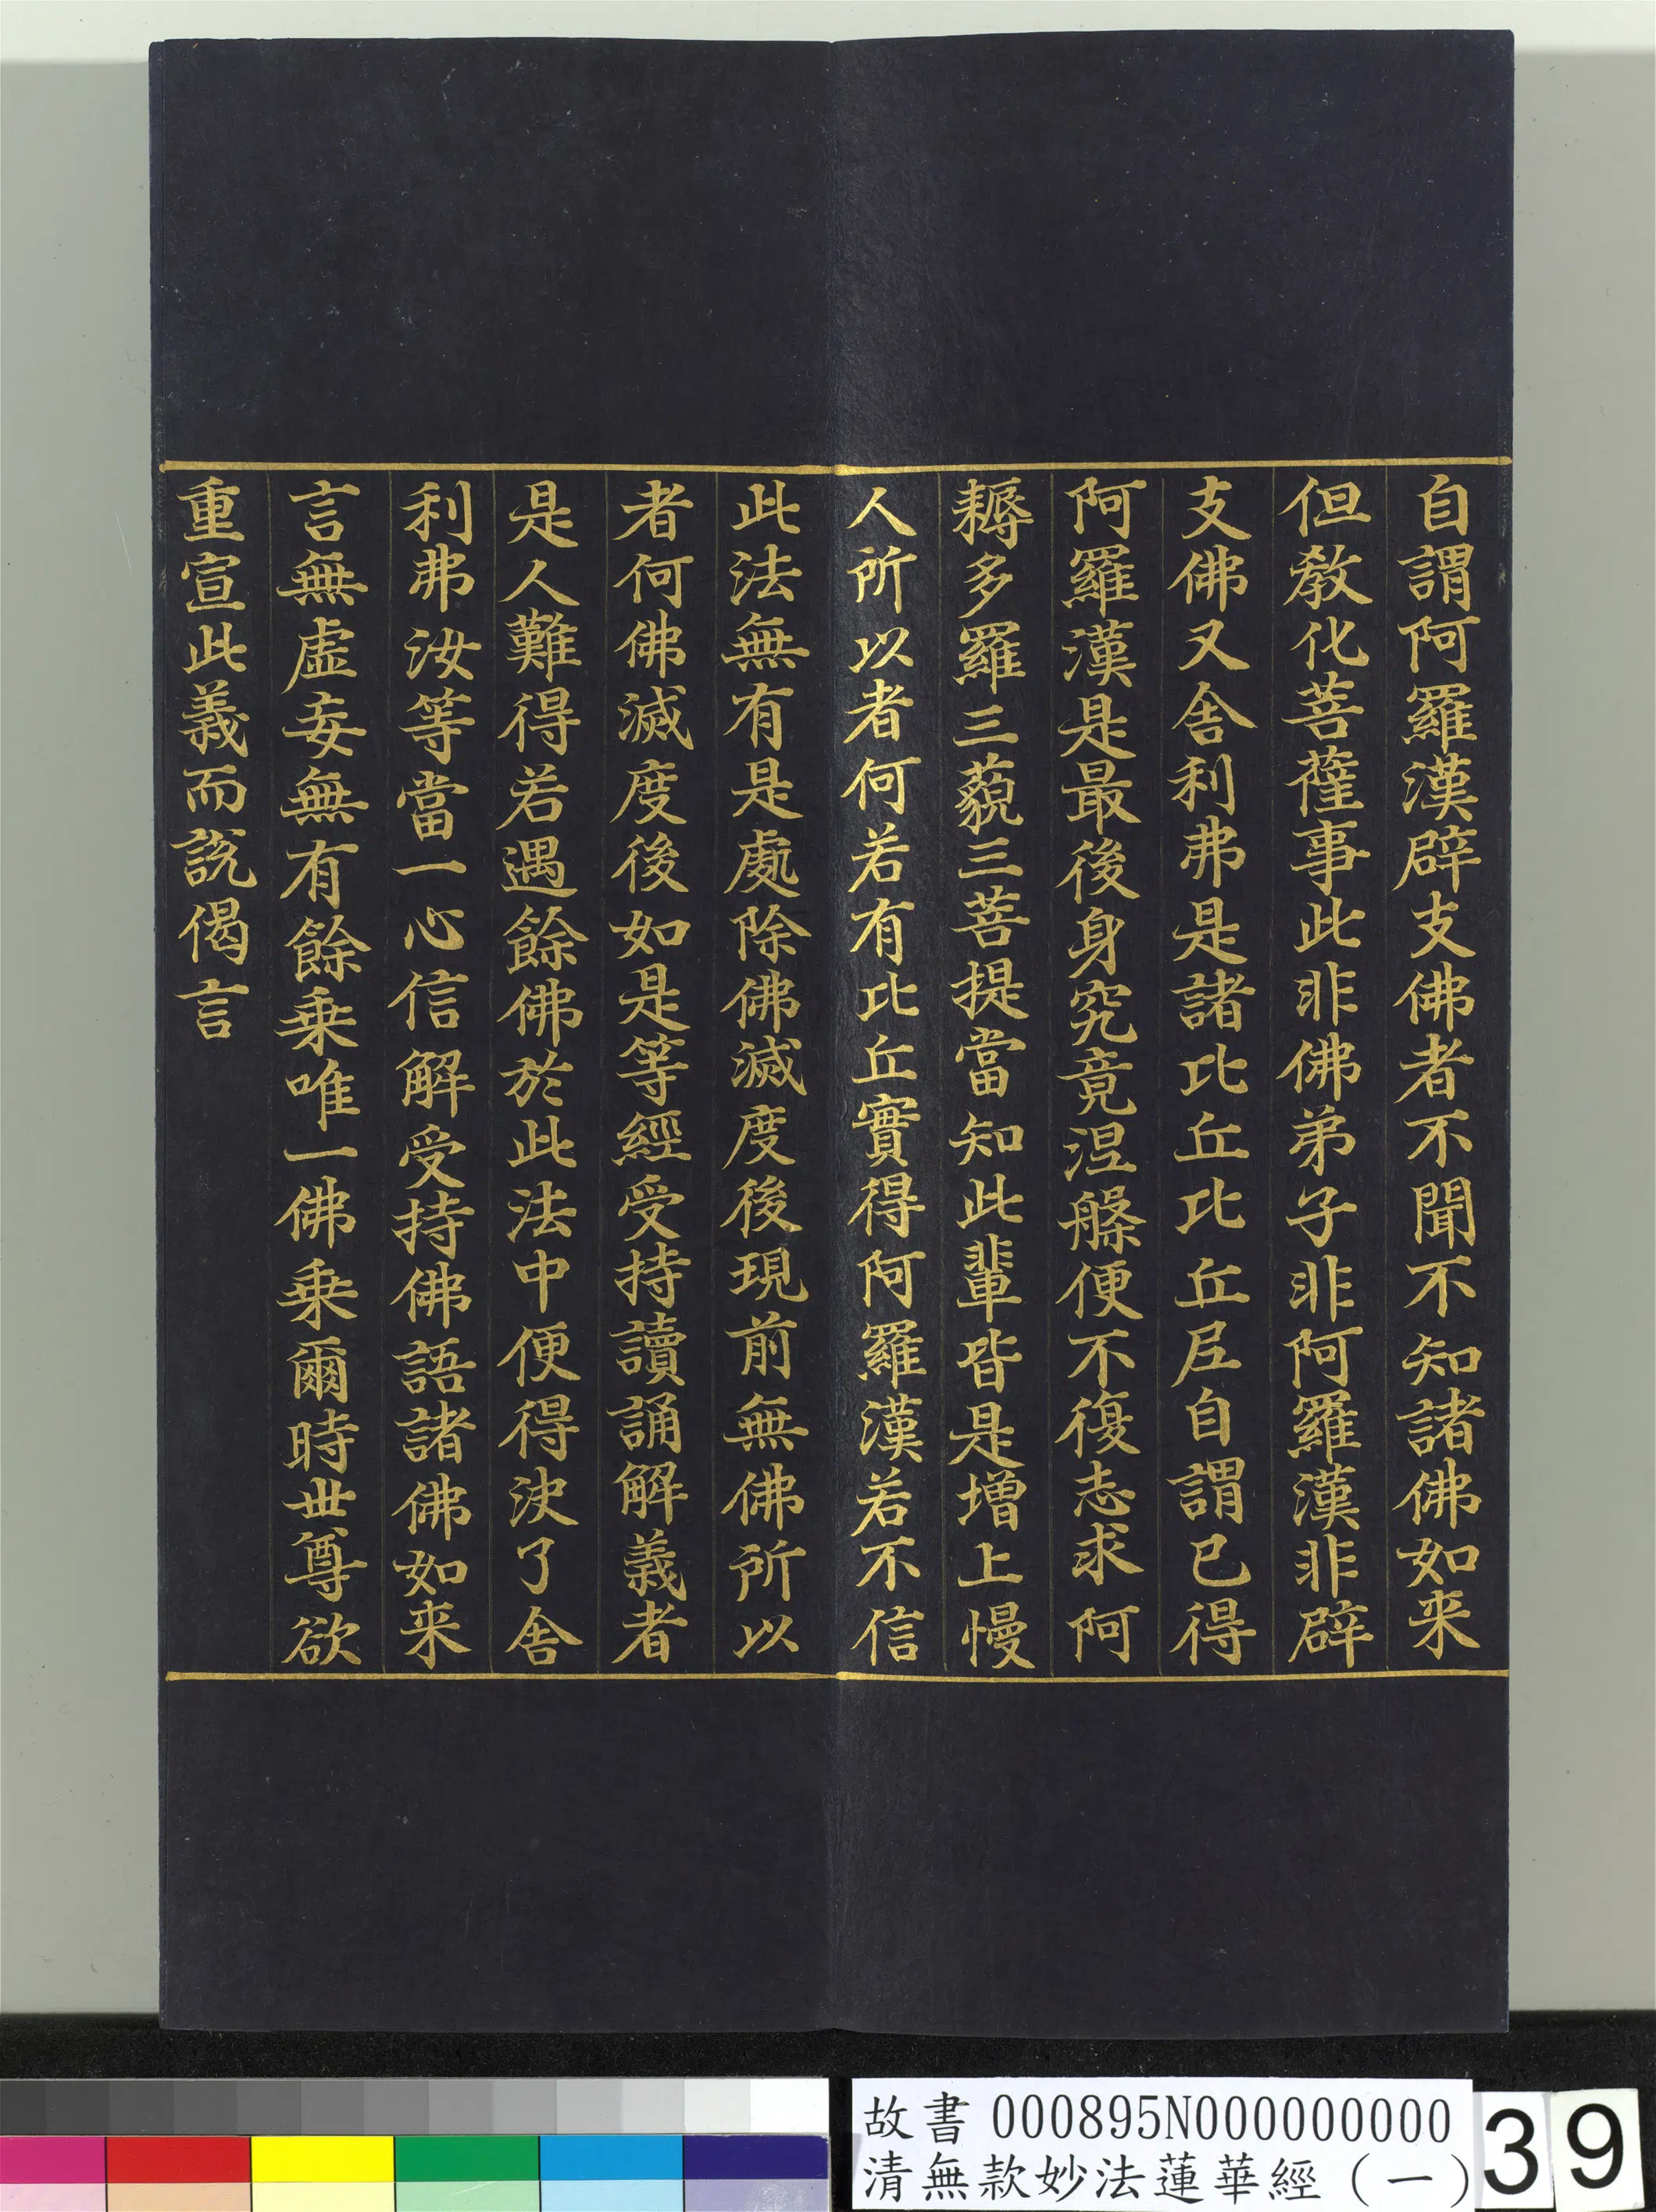 自謂阿羅漢辟支佛者不聞不知諸佛如来
但教化菩薩事此非佛弟子非阿羅漢非辟
支佛又舎利弗是諸比丘比丘尼自謂已得
阿羅漢是最後身究竟涅槃便不復志求阿
耨多羅三藐三菩提當知此輩皆是增上慢
人所以者何若有比丘實得阿羅漢若不信
此法無有是處除佛滅度後現前無佛所以
者何佛滅度後如是等經受持讀誦解義者
是人難得若遇餘佛於此法中便得決了舎
利弗汝等當一心信解受持佛語諸佛如来
言無虛妄無有餘乗唯一佛乗爾時世尊欲
重宣此義而說偈言
故書 000895N000000000
清無款妙法蓮華經（一）
39